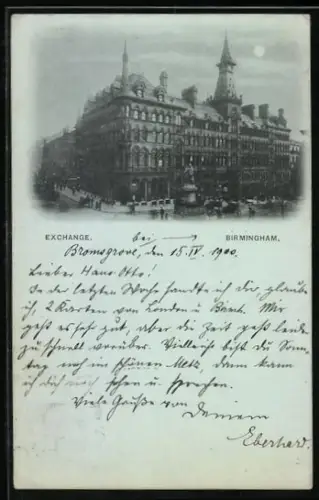 EXCHANGE. bei → BIRMINGHAM.
Bromsgrove, den 15.IV. 1900.
Lieber Hans Otto!
In der letzten Woche sandte ich dir, glaube
ich, 2 Karten von London u. Mir
geht es sehr gut, aber die Zeit geht leider
zu schnell vorüber. Vielleicht bist du Sonn-
tag noch im schönen Metz, dann kann
ich dich noch sehen u. sprechen.
Viele Grüße von
Deinem
Eberhard.